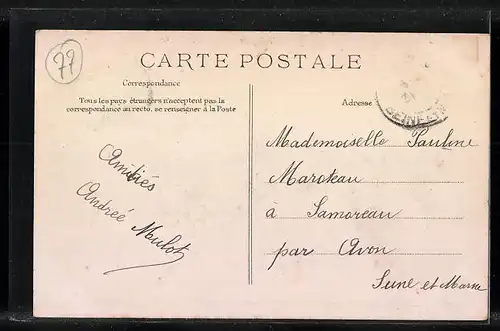 77
CARTE POSTALE
Correspondance
Tous les pays étrangers n'acceptent pas la
correspondance au recto, se renseigner à la Poste
Amitiés
Andrée Mulot
Adresse
SEINE-ET-
Mademoiselle Pauline
Maroteau
à Samoreau
par Avon
Seine et Marne